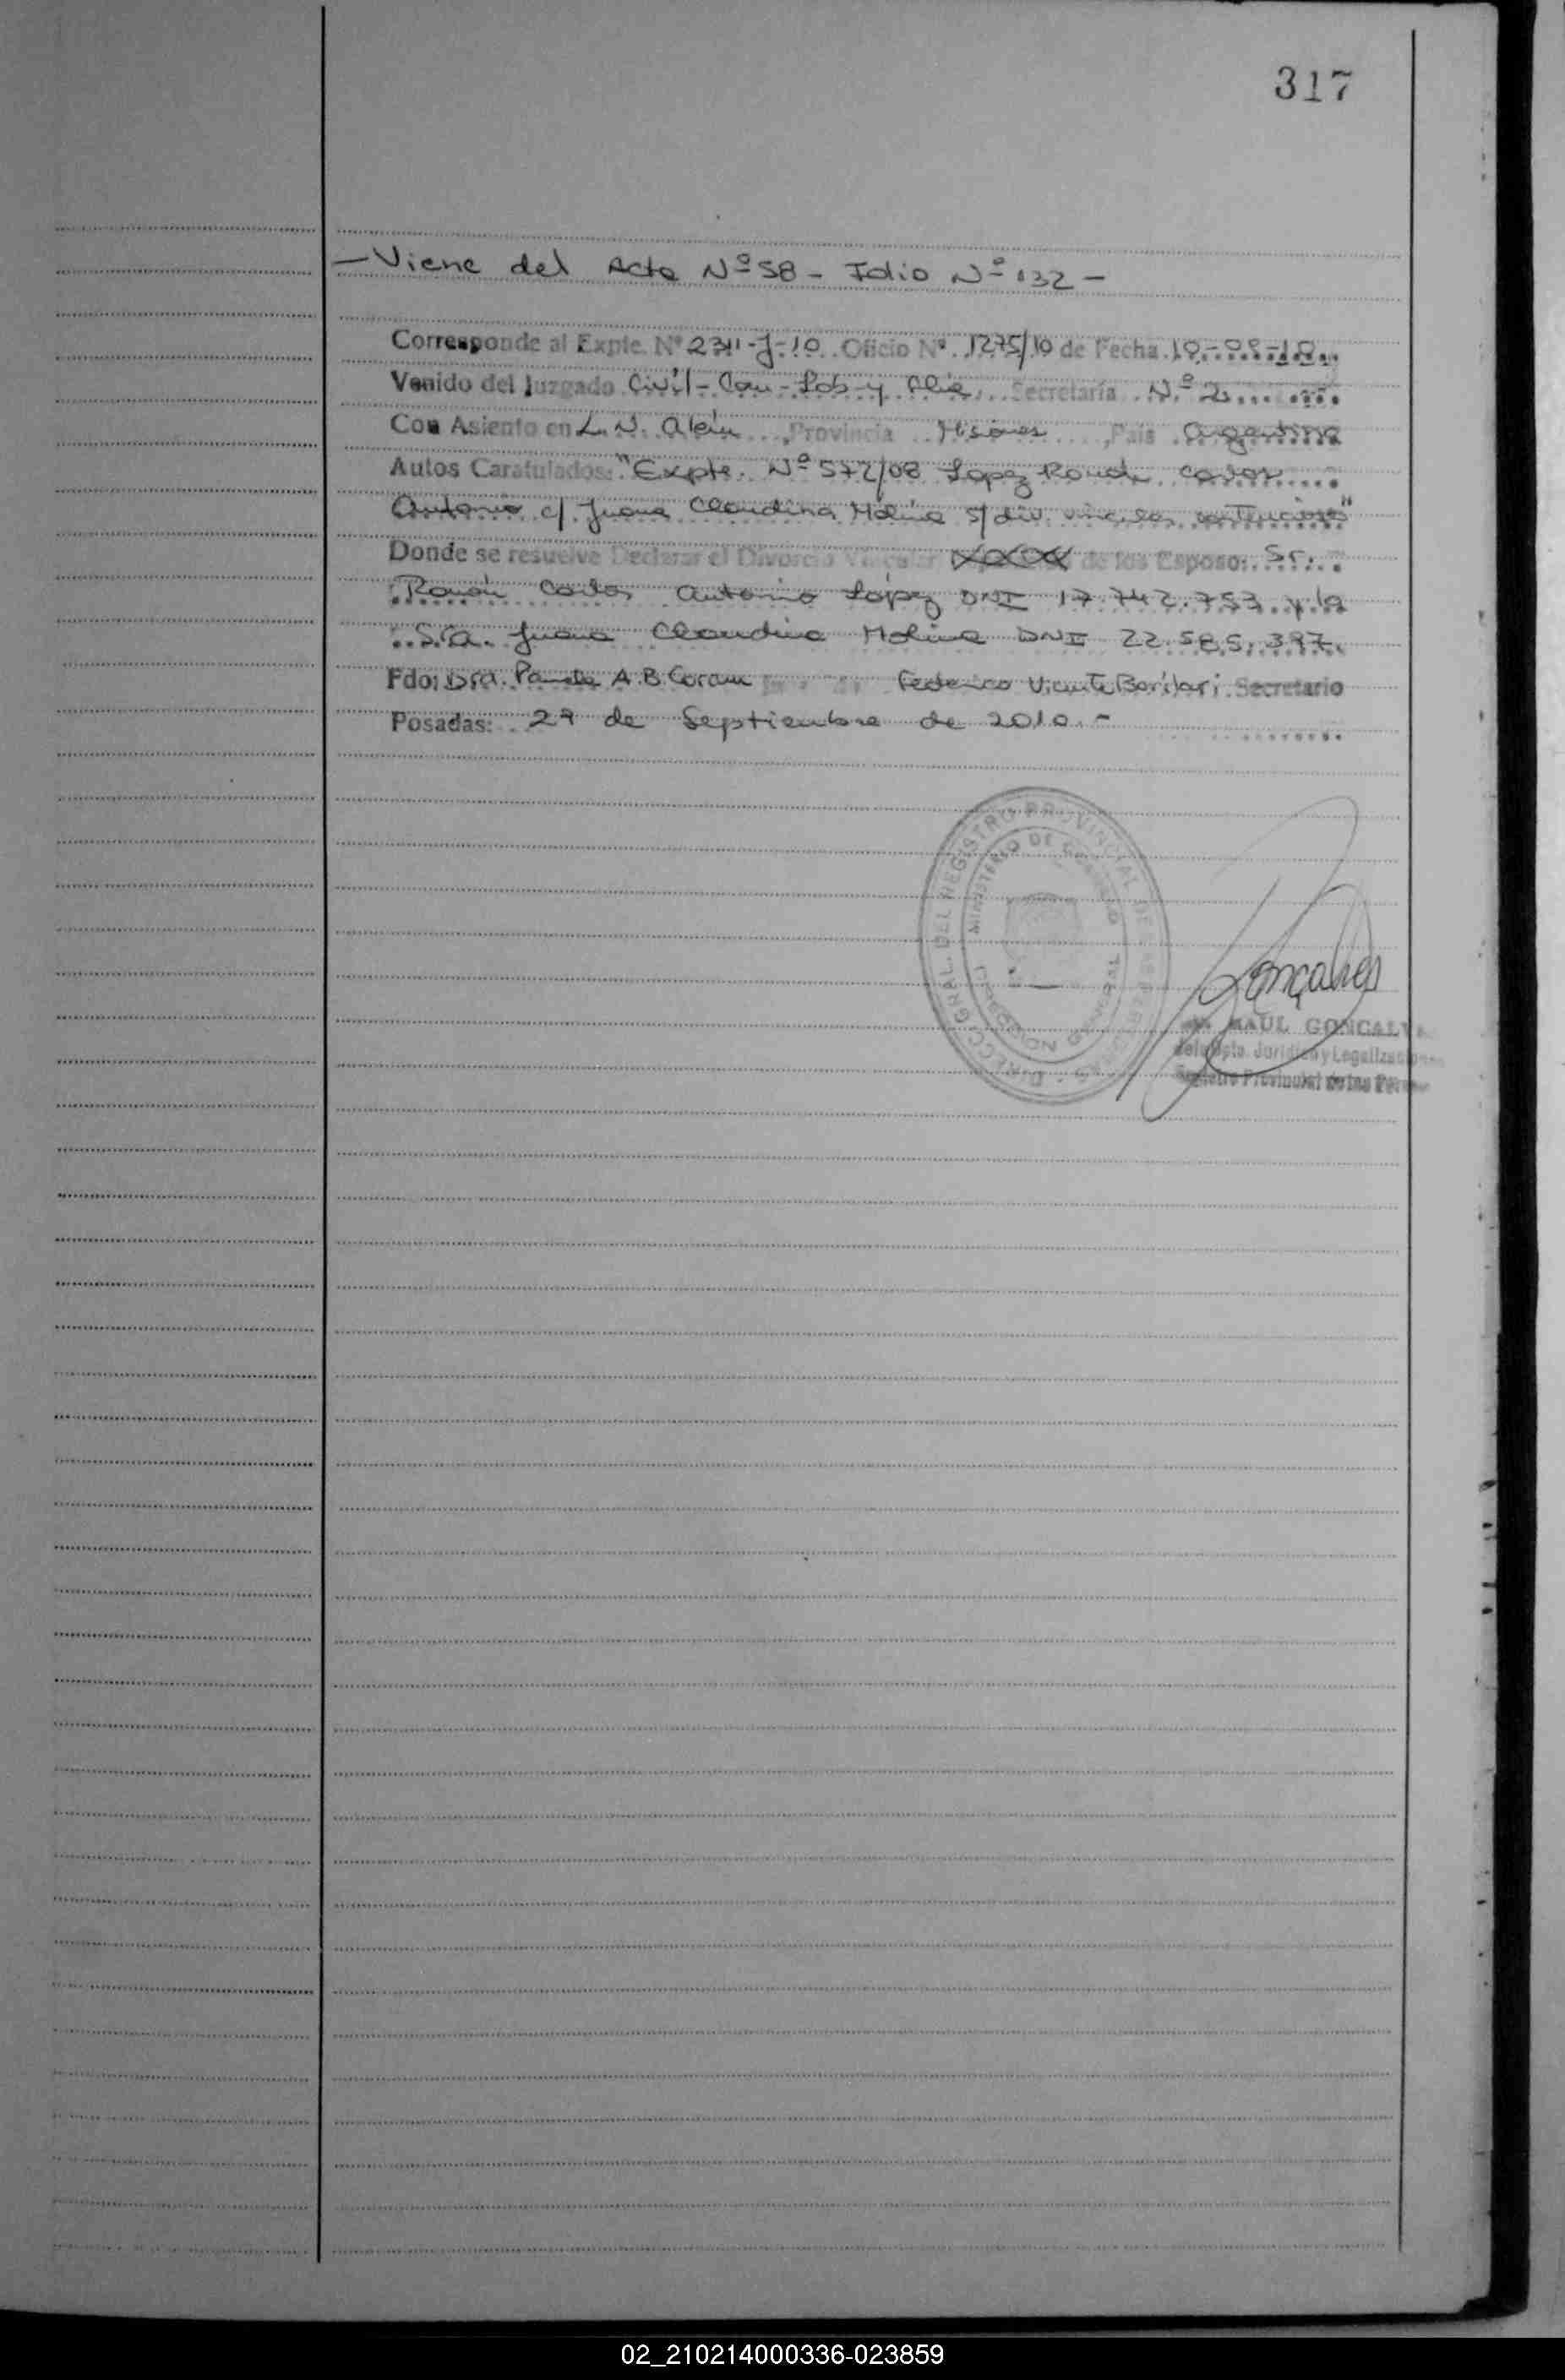 317
- Viene del Acta Nº 58 - Folio Nº 132 -
Corresponde al Expte. Nº 2311-J-10. Oficio Nº. 1275/10 de Fecha 10-09-10
Venido del Juzgado Civil - Com - Lab y Flia. Secretaría Nº 2
Con Asiento en L. N. Alem, Provincia Misiones, País Argentina
Autos Caratulados: "Expte. Nº 572/08 Lopez Ramón Carlos
Antonio c/ Juana Claudina Molina s/ div. vincular contencioso"
Donde se resuelve Declarar el Divorcio Vincular de los Esposo: Sr.
Ramón Carlos Antonio López DNI 17.742.753 y la
Sra. Juana Claudina Molina DNI 22.585.397.
Fdo: Dra. A.B. Federico Vicente Secretario
Posadas: 29 de Septiembre de 2010.-
DIRECC. GRAL. DEL REGISTRO PROVINCIAL DE LAS PERSONAS
MINISTERIO DE GOBIERNO
Gonçalves
RAUL GONCALVES
Dpto. Jurídico y Legalizaciones
Registro Provincial de las
02_210214000336-023859